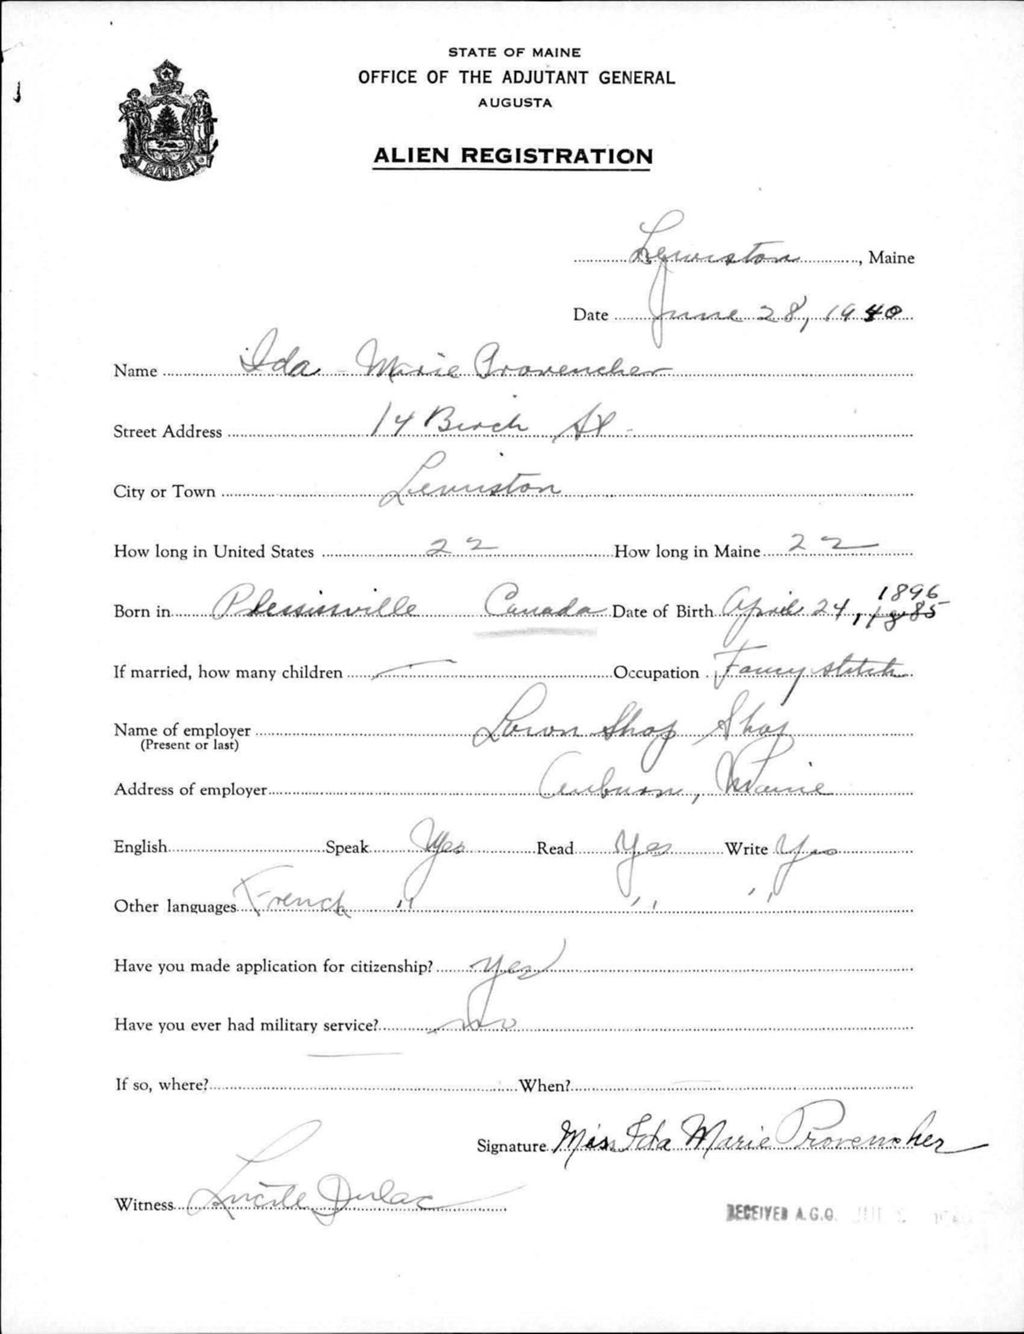 STATE OF MAINE
OFFICE OF THE ADJUTANT GENERAL
AUGUSTA
ALIEN REGISTRATION
MAINE
Lewiston, Maine
Date June 28, 1940
Name Ida Marie Provencher
Street Address 14 Birch St
City or Town Lewiston
How long in United States 22 How long in Maine 22
1896
Born in Plessisville Canada Date of Birth April 24, 1885
If married, how many children — Occupation Fancy stitch
Name of employer Lown Shop Shop
(Present or last)
Address of employer Auburn, Maine
English Speak Yes Read Yes Write Yes
Other languages French " " "
Have you made application for citizenship? Yes
Have you ever had military service? no
If so, where? When?
Signature Miss Ida Marie Provencher
Witness Lucile Dulac
RECEIVED A.G.O.